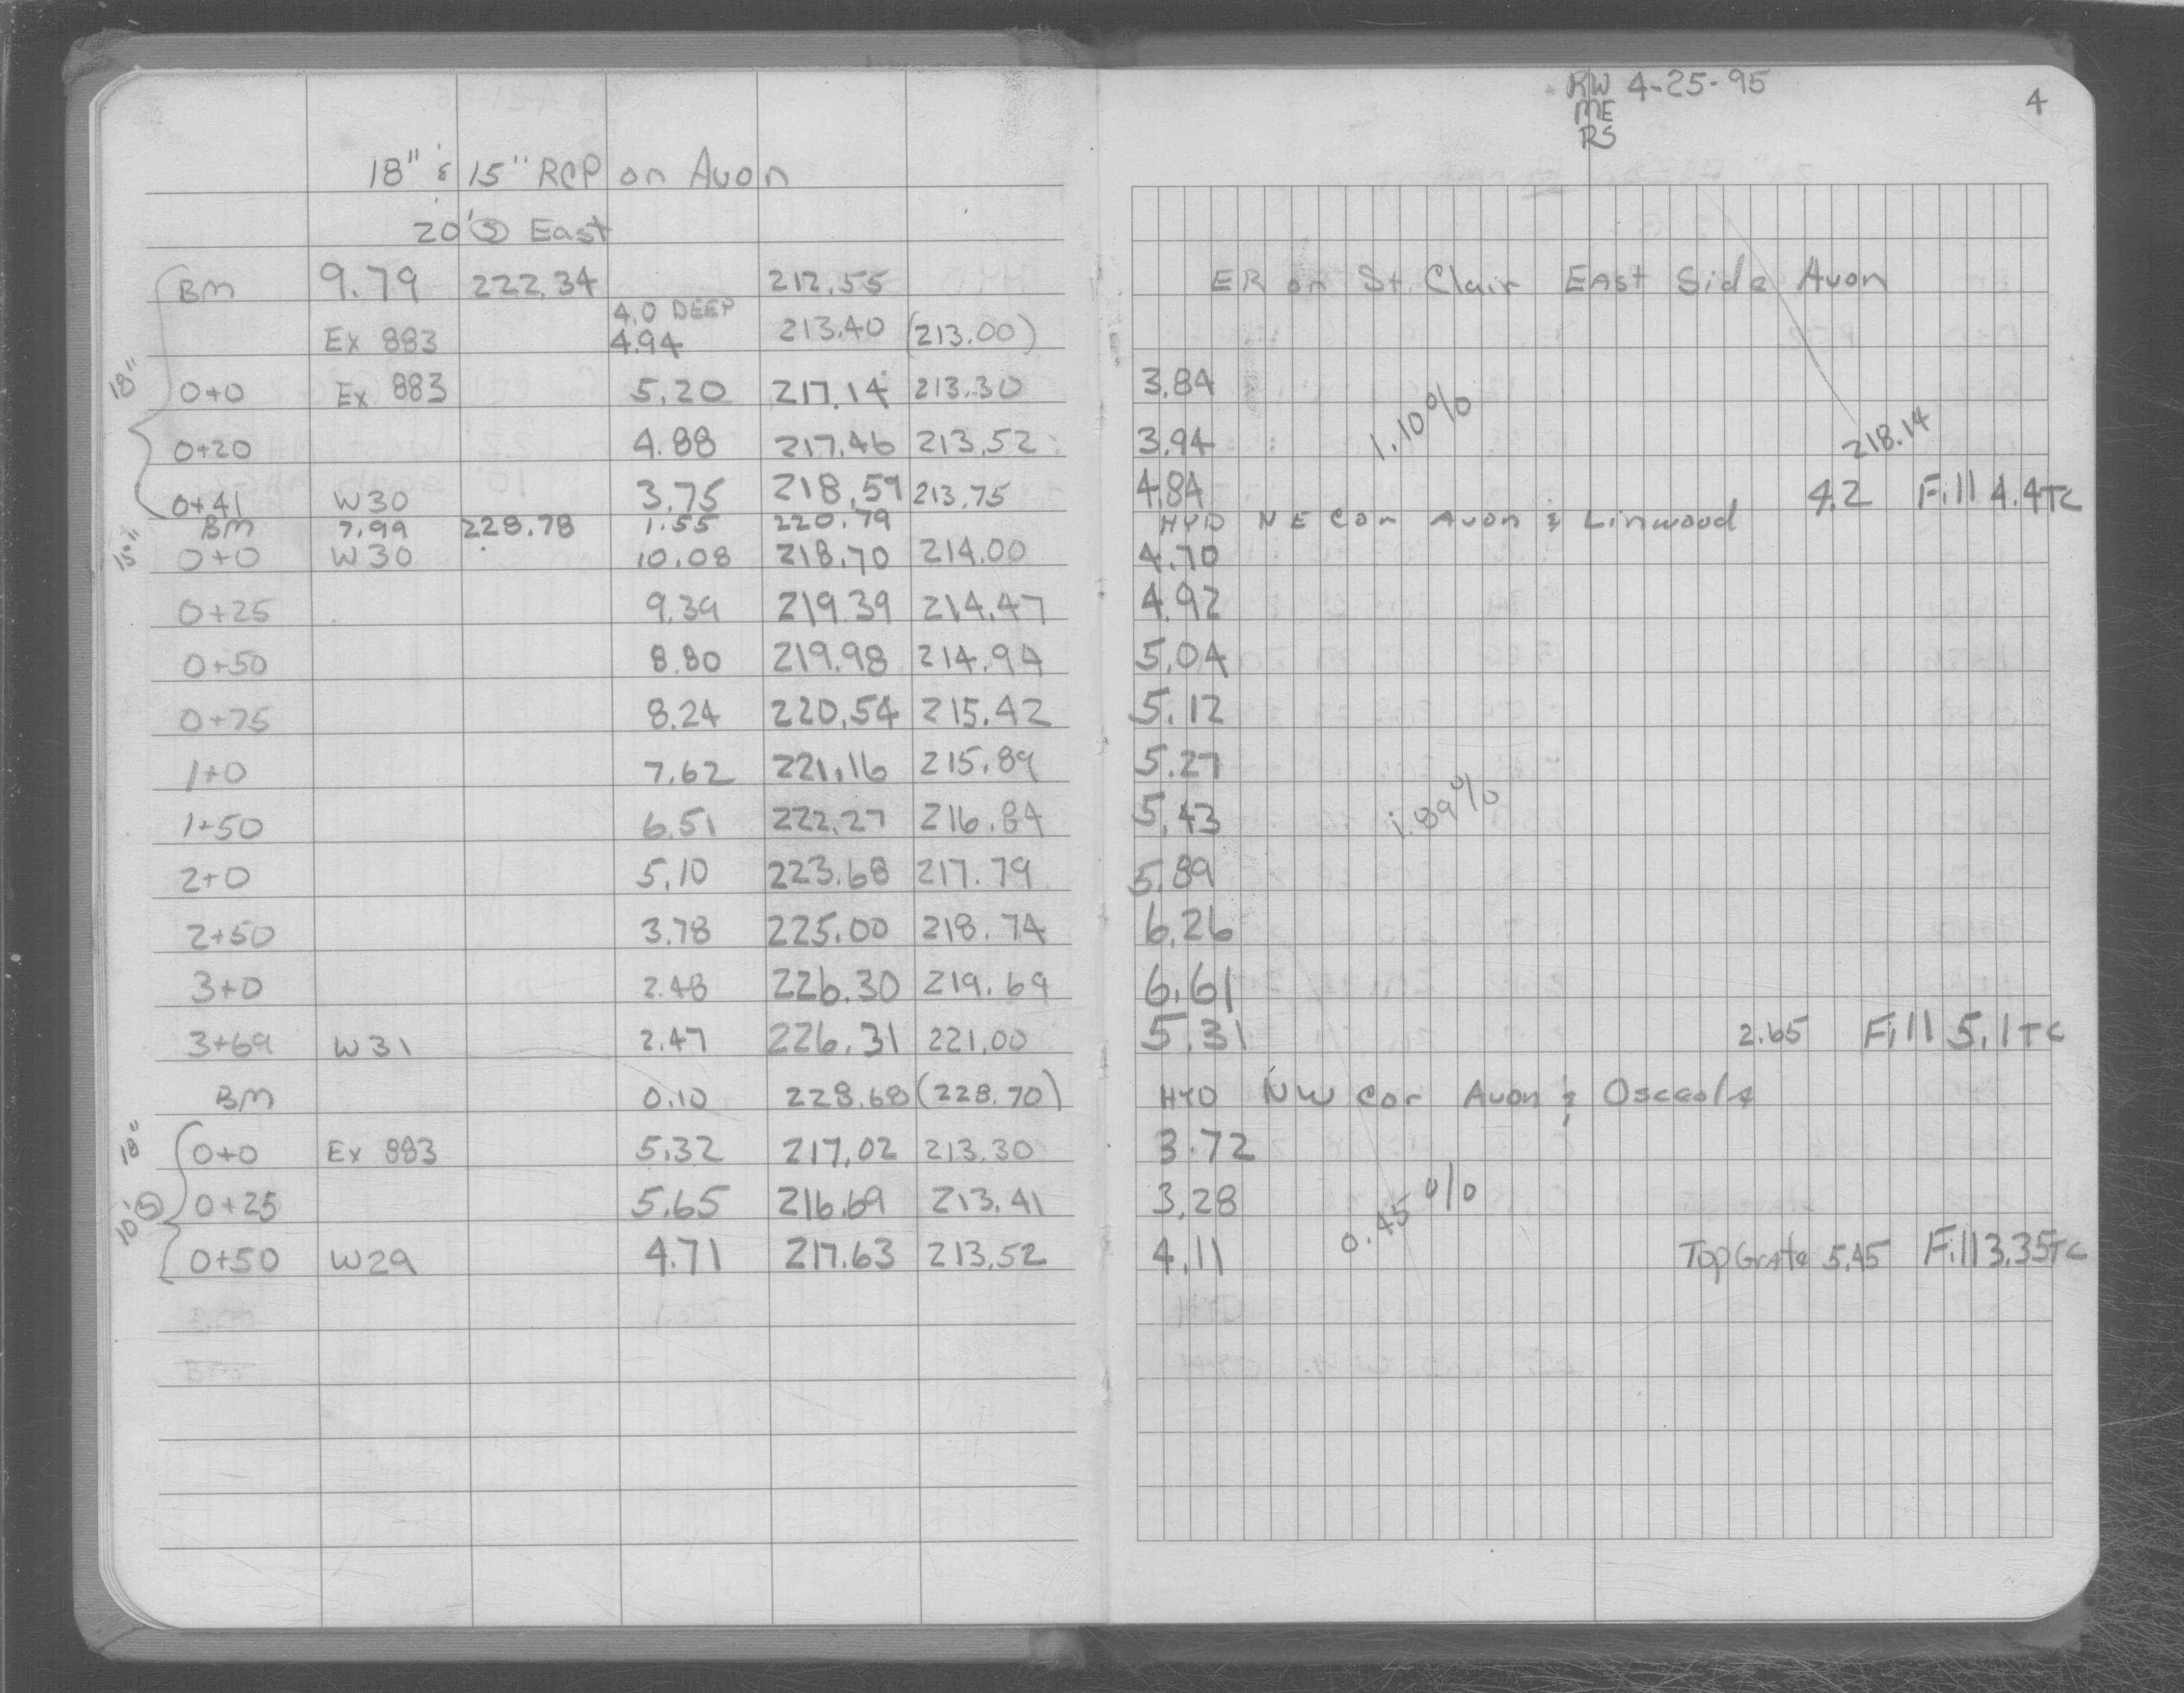 RW 4-25-95
ME
RS
4
18" & 15" RCP on Avon
20' Ⓢ East
BM 9.79 222.34 212.55 ER on St. Clair East Side Avon
4.0 DEEP
Ex 883 4.94 213.40 (213.00)
18"
0+0 Ex 883 5.20 217.14 213.30 3.84
1.10%
0+20 4.88 217.46 213.52 3.94 218.14
0+41 W30 3.75 218.59 213.75 4.84 4.2 Fill 4.4 TC
BM 7.99 228.78 1.55 220.79 HYD NE Cor Avon & Linwood
15" 0+0 W30 10.08 218.70 214.00 4.70
0+25 9.39 219.39 214.47 4.92
0+50 8.80 219.98 214.94 5.04
0+75 8.24 220.54 215.42 5.12
1+0 7.62 221.16 215.89 5.27
1+50 6.51 222.27 216.84 5.43 1.89%
2+0 5.10 223.68 217.79 5.89
2+50 3.78 225.00 218.74 6.26
3+0 2.48 226.30 219.69 6.61
3+69 W31 2.47 226.31 221.00 5.31 2.65 Fill 5.1 TC
BM 0.10 228.68 (228.70) HYD NW Cor Avon & Osceola
18" 0+0 Ex 883 5.32 217.02 213.30 3.72
10' Ⓢ 0+25 5.65 216.69 213.41 3.28 0.45%
0+50 W29 4.71 217.63 213.52 4.11 Top Grate 5.45 Fill 3.35 TC